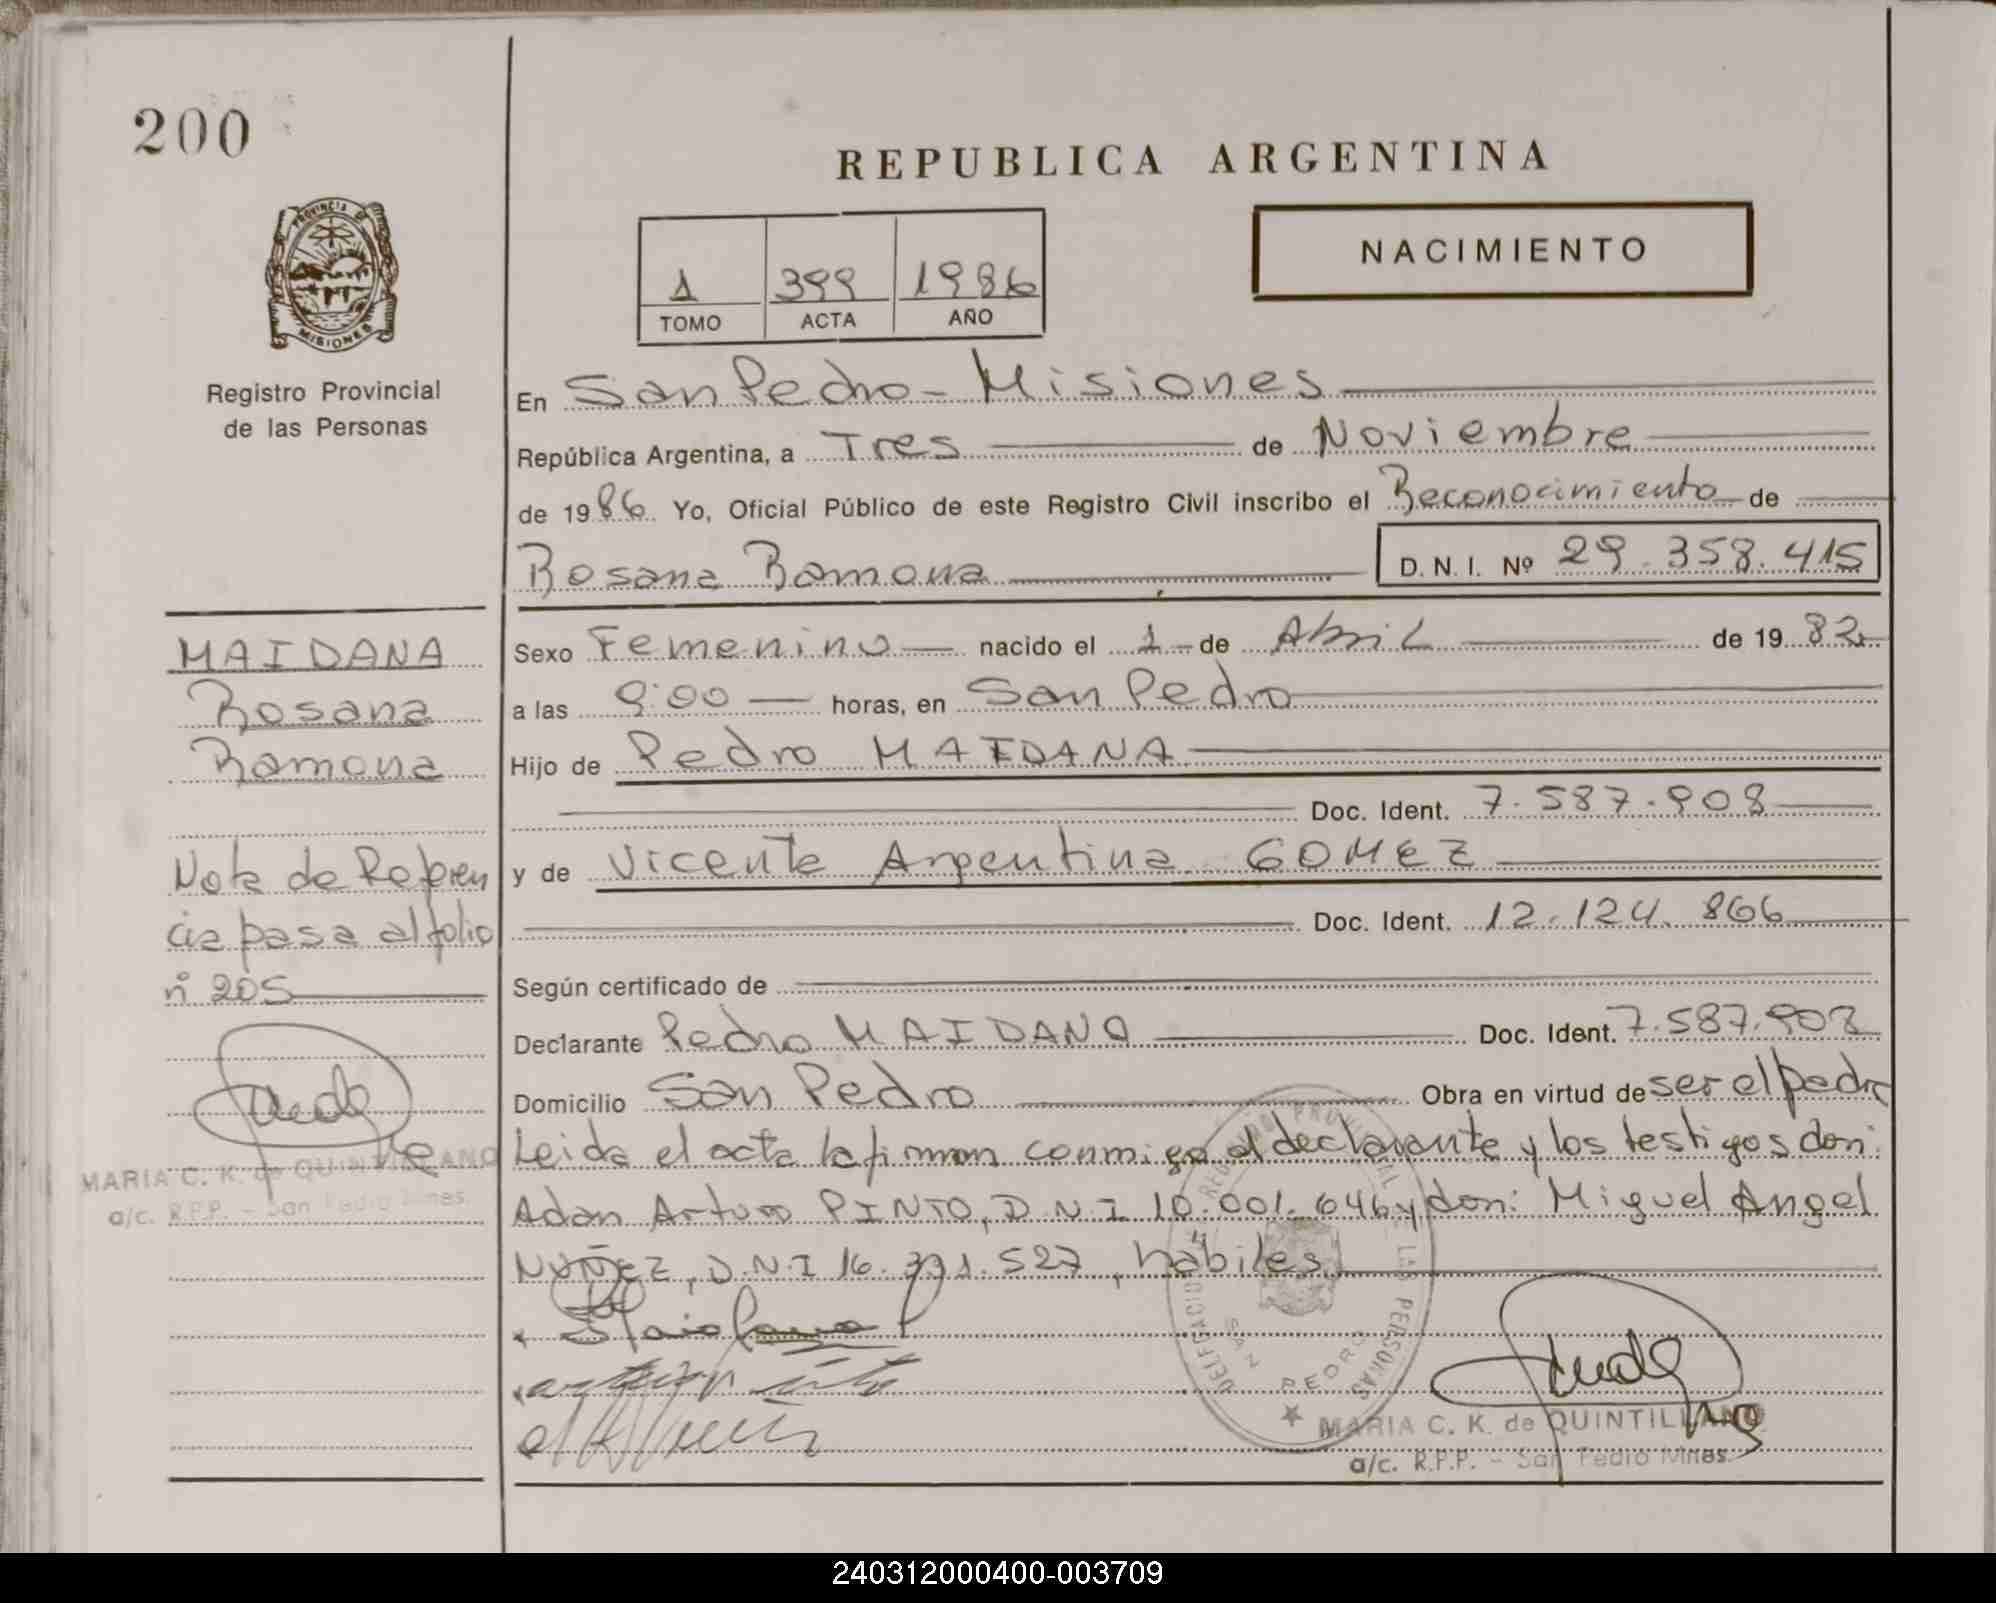 200
REPUBLICA ARGENTINA
PROVINCIA DE
MISIONES
Registro Provincial
de las Personas
1 399 1986
TOMO ACTA AÑO
NACIMIENTO
En San Pedro - Misiones
República Argentina, a Tres de Noviembre
de 1986 Yo, Oficial Público de este Registro Civil inscribo el Reconocimiento de
Rosana Ramona D. N. I. Nº 29.358.415
MAIDANA
Rosana
Ramona
Nota de Referen
cia pasa al folio
nº 205
MARIA C. K. de QUINTILLANO
a/c. R.P.P. - San Pedro Mnes.
Sexo Femenino nacido el 1 de Abril de 1982
a las 9:00 horas, en San Pedro
Hijo de Pedro MAIDANA
Doc. Ident. 7.587.908
y de Vicente Argentina GOMEZ
Doc. Ident. 12.124.866
Según certificado de
Declarante Pedro MAIDANA Doc. Ident. 7.587.908
Domicilio San Pedro Obra en virtud de ser el padre
Leida el acta la firman conmigo el declarante y los testigos don:
Adan Arturo PINTO, D.N.I 10.001.646 y don: Miguel Angel
NUÑEZ, D.N.I 16. 527, hábiles.
DELEGACION REGISTRO PROVINCIAL DE LAS PERSONAS
SAN PEDRO
MARIA C. K. de QUINTILLANO
a/c. R.P.P. - San Pedro Mnes.
240312000400-003709